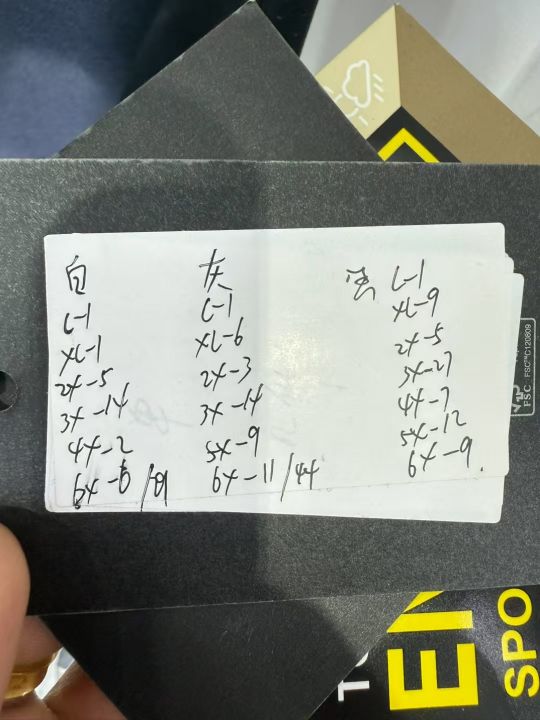 白
L-1
XL-1
2X-5
3X-14
4X-2
6X-6
灰
L-1
XL-6
2X-3
3X-14
5X-9
6X-11/44
L-1
XL-9
2X-5
3X-27
4X-7
5X-12
6X-9.
FSC FSC™C120809
EN
SPO